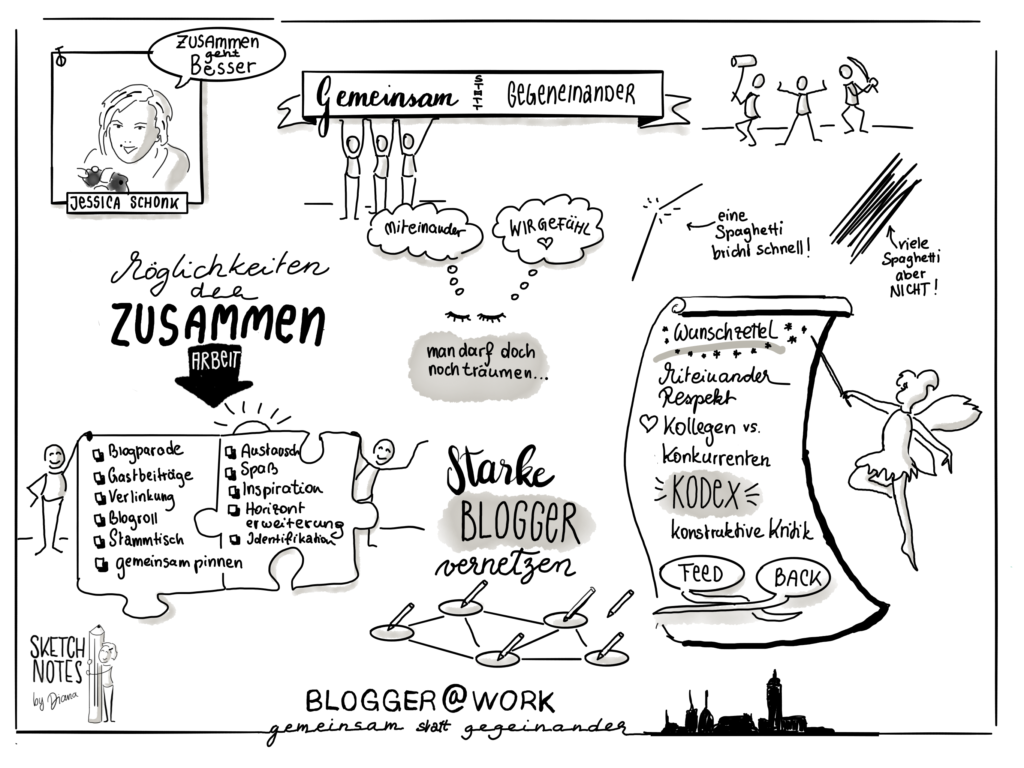 ZUSAMMEN
geht
BESSER
JESSICA SCHONK
Gemeinsam STATT GEGENEINANDER
miteinander
WIRGEFÜHL
eine
Spaghetti
bricht schnell!
viele
Spaghetti
aber
NICHT!
Möglichkeiten
der
ZUSAMMEN
ARBEIT
man darf doch
noch träumen...
Blogparade
Gastbeiträge
Verlinkung
Blogroll
Stammtisch
gemeinsam pinnen
Austausch
Spaß
Inspiration
Horizont
erweiterung
Identifikation
Starke
BLOGGER
vernetzen
Wunschzettel
Miteinander
Respekt
Kollegen vs.
Konkurrenten
KODEX
konstruktive Kritik
FEED BACK
SKETCH
NOTES
by Diana
BLOGGER@WORK
gemeinsam statt gegeinander